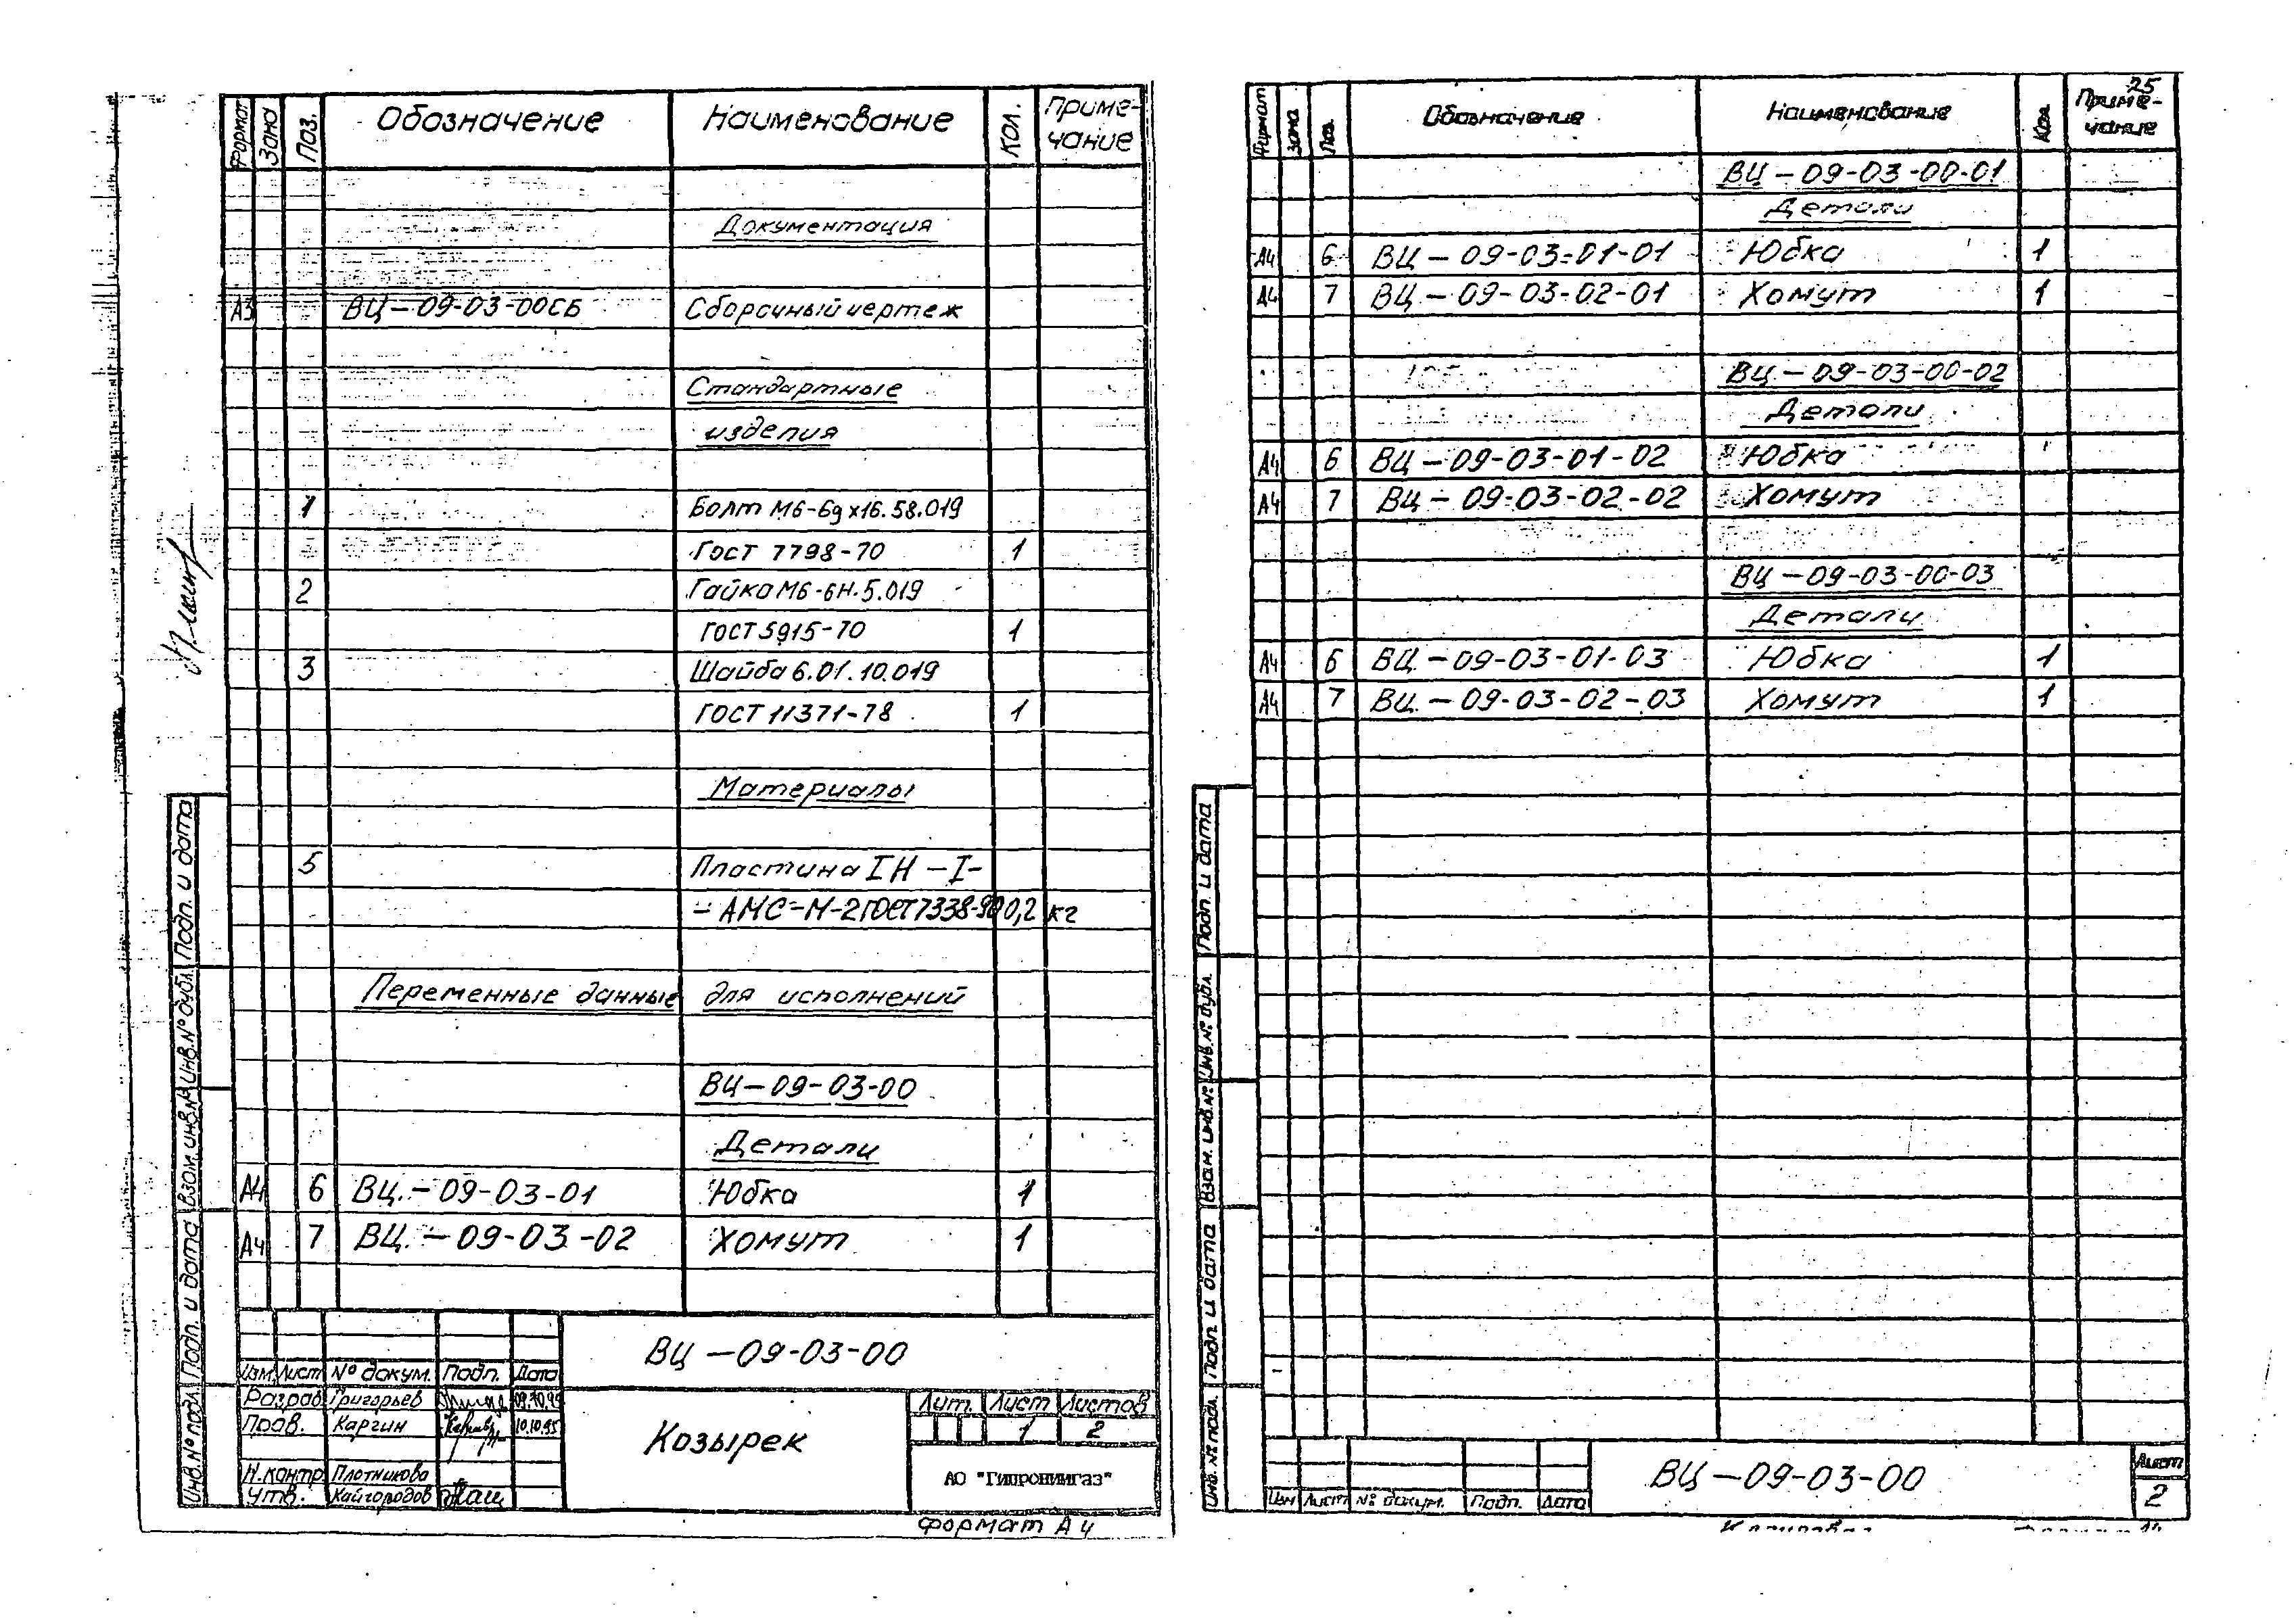 Формат Зона Поз. Обозначение Наименование Кол. Приме-
чание
Документация
А3 ВЦ-09-03-00СБ Сборочный чертеж
Стандартные
изделия
1 Болт М6-6gх16.58.019
ГОСТ 7798-70 1
2 Гайка М6-6Н.5.019
ГОСТ 5915-70 1
3 Шайба 6.01.10.019
ГОСТ 11371-78 1
Материалы
5 Пластина IН-I-
-АМС-М-2 ГОСТ 7338-90 0,2 кг
Переменные данные для исполнений
ВЦ-09-03-00
Детали
А4 6 ВЦ-09-03-01 Юбка 1
А4 7 ВЦ-09-03-02 Хомут 1
Подп. и дата
Инв. № дубл.
Взам. инв. №
Подп. и дата
Инв. № подл.
ВЦ-09-03-00
Изм. Лист № докум. Подп. Дата
Разраб. Григорьев 09.10.95
Пров. Каргин 10.10.95
Н.контр. Плотникова
Утв. Кайгородов
Козырек
Лит. Лист Листов
1 2
АО "Гипрониигаз"
Формат А4
25
Формат Зона Поз. Обозначение Наименование Кол Приме-
чание
ВЦ-09-03-00-01
Детали
А4 6 ВЦ-09-03-01-01 Юбка 1
А4 7 ВЦ-09-03-02-01 Хомут 1
ВЦ-09-03-00-02
Детали
А4 6 ВЦ-09-03-01-02 Юбка
А4 7 ВЦ-09-03-02-02 Хомут
ВЦ-09-03-00-03
Детали
А4 6 ВЦ-09-03-01-03 Юбка 1
А4 7 ВЦ-09-03-02-03 Хомут 1
Подп. и дата
Инв. № дубл.
Взам. инв. №
Подп. и дата
Инв. № подл.
Изм Лист № докум. Подп. Дата
ВЦ-09-03-00
Лист
2